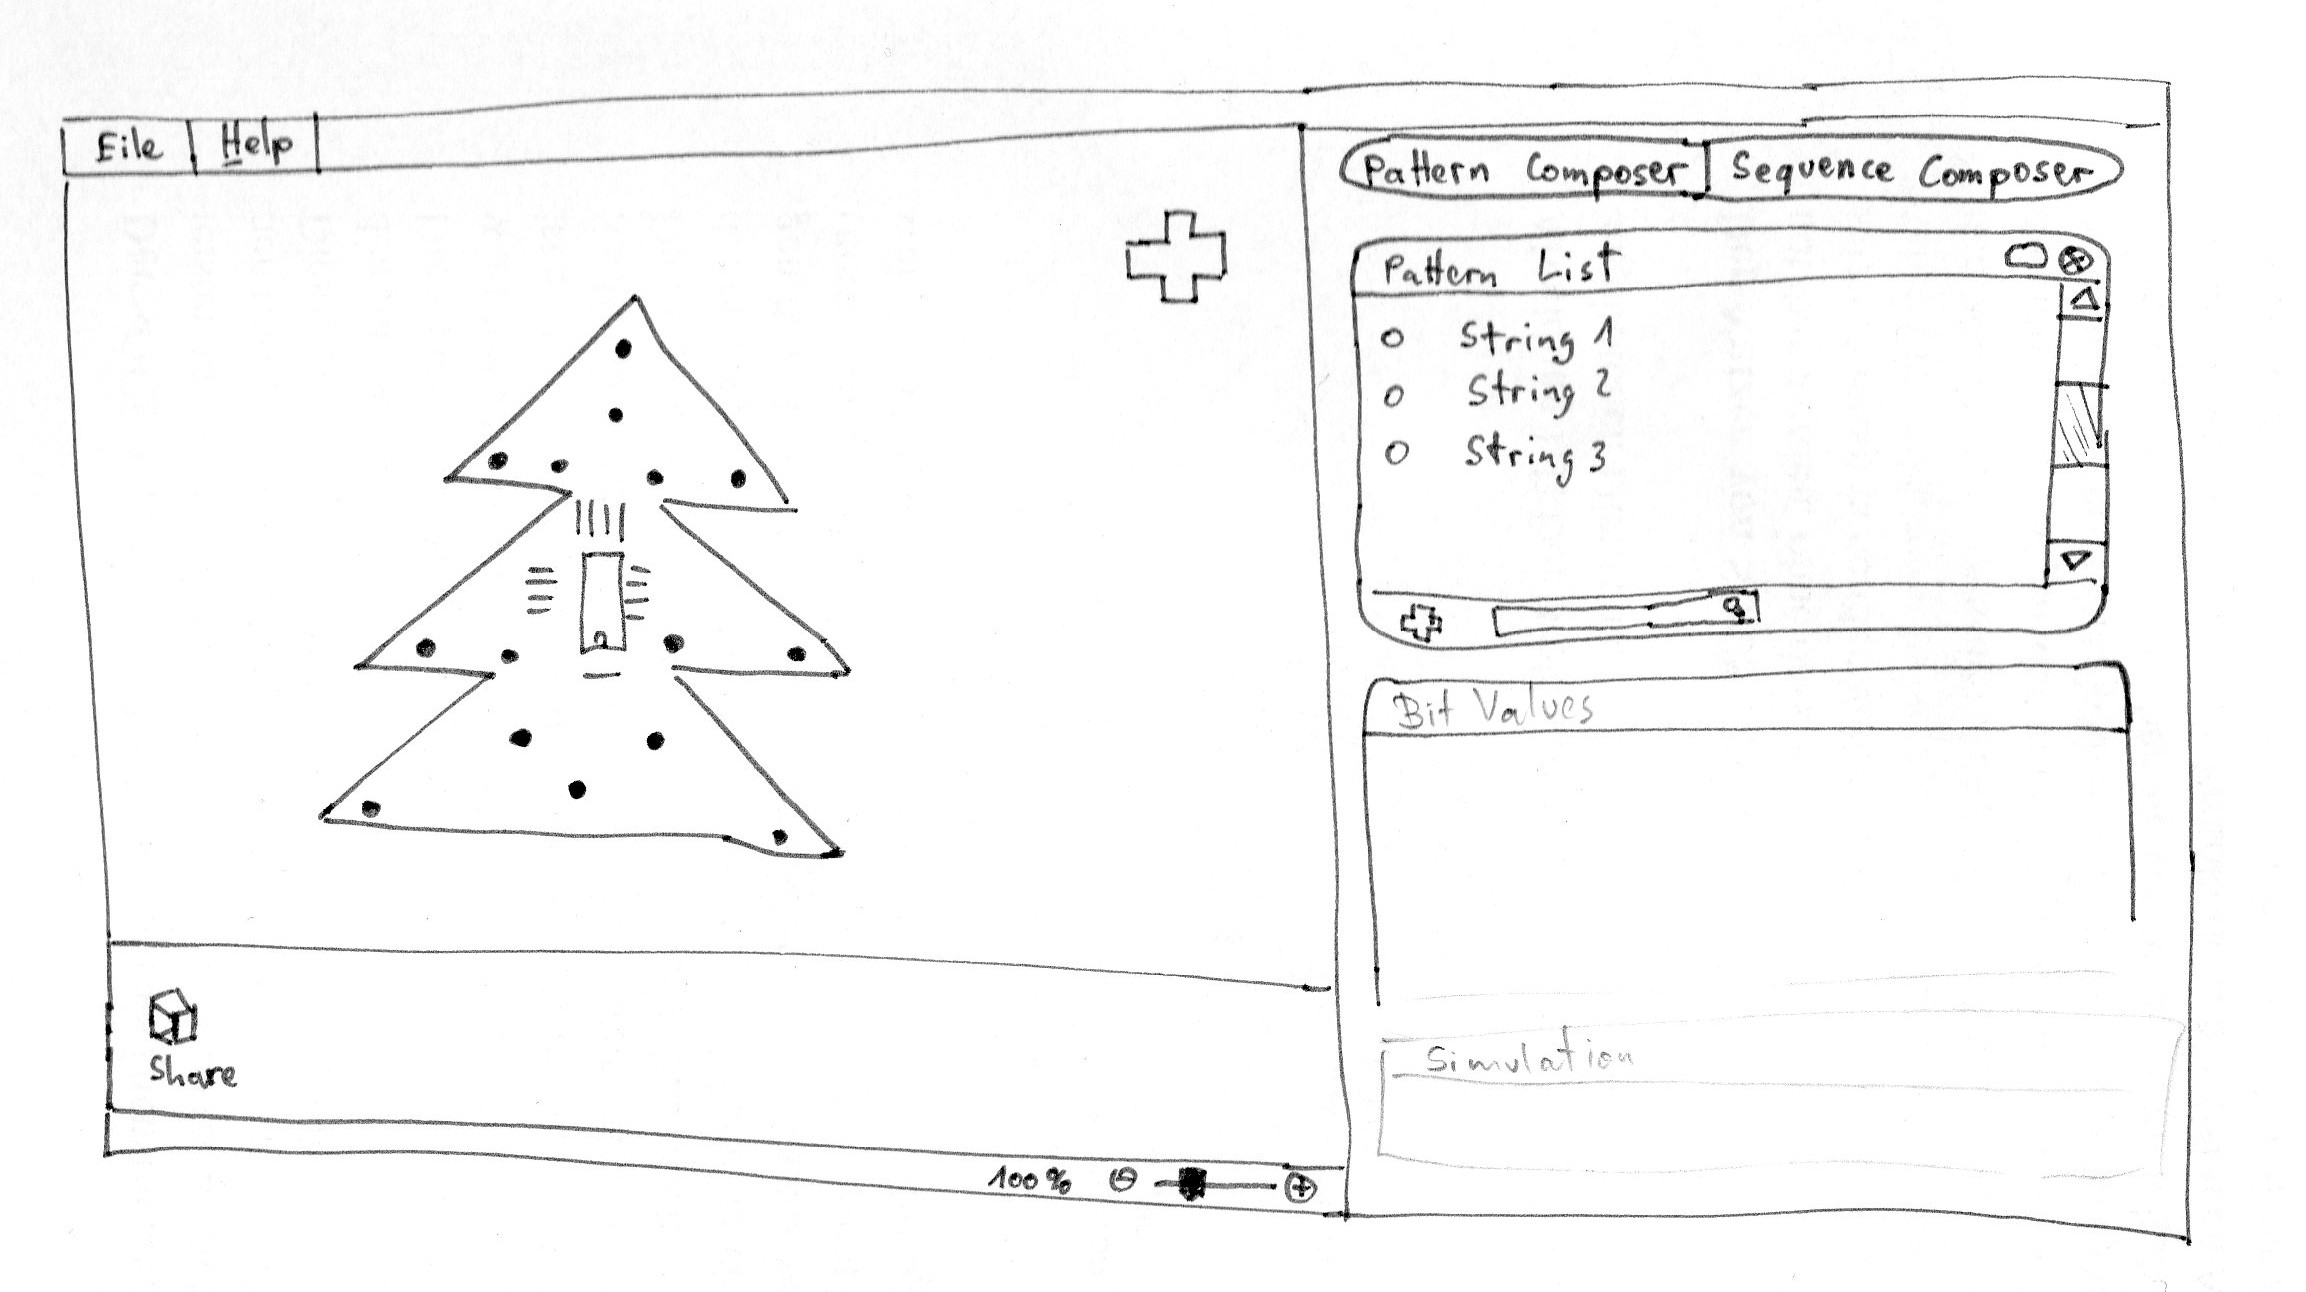 File
Help
Pattern Composer
Sequence Composer
Pattern List
String 1
String 2
String 3
Bit Values
Simulation
Share
100%